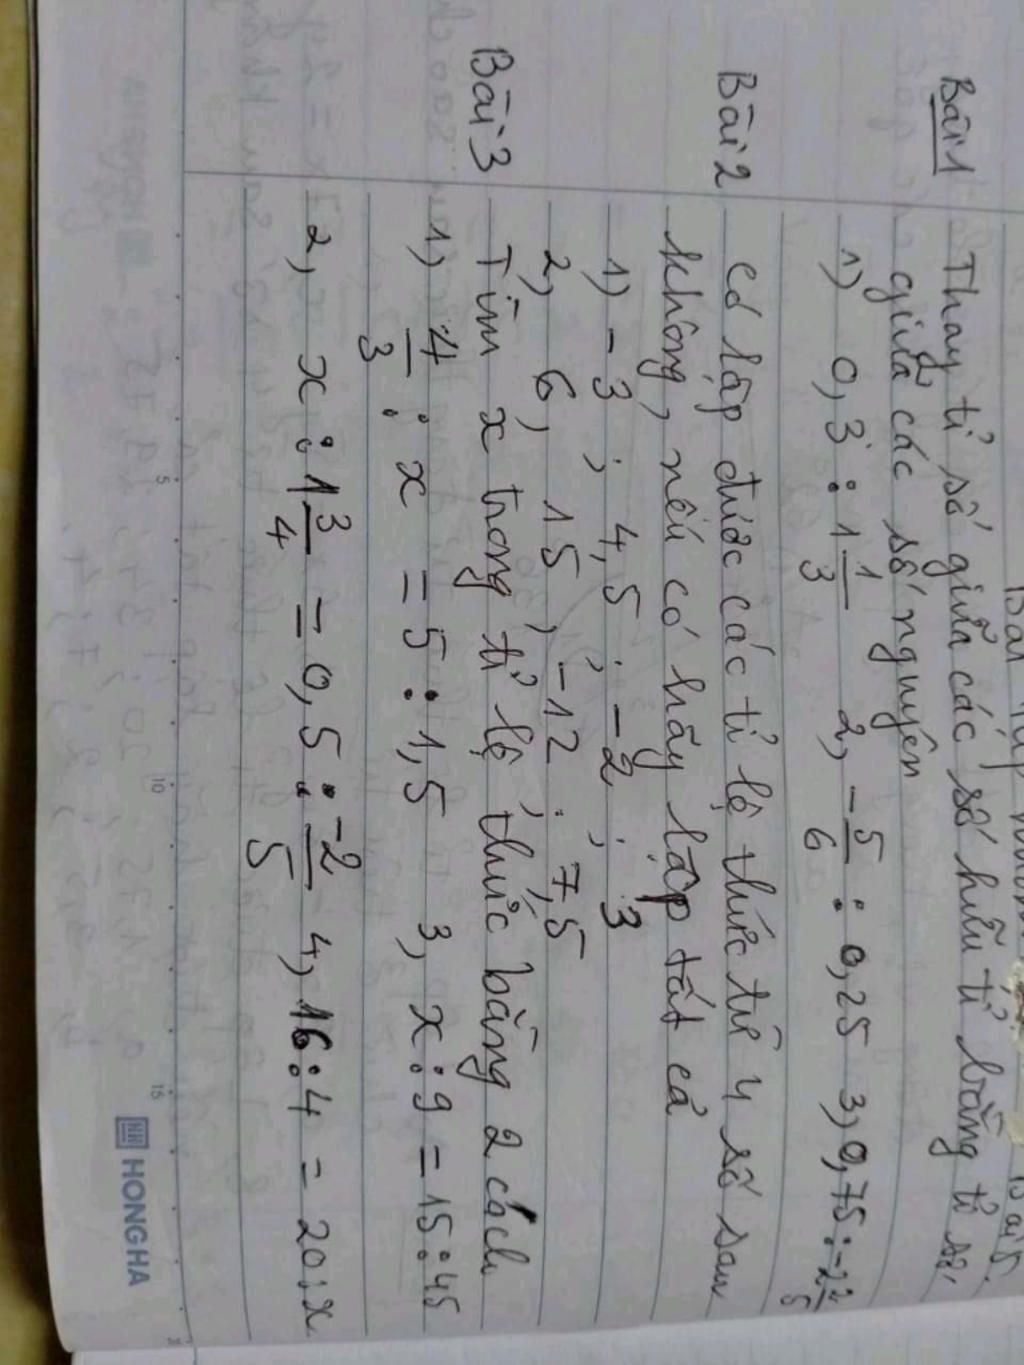 Bài 1 Thay tỉ số giữa các số hữu tỉ bằng tỉ số
giữa các số nguyên
1) 0,3 : 1 1/3 2, -5/6 : 0,25 3, 0,75 : -2 2/5
Bài 2 Có lập được các tỉ lệ thức từ 4 số sau
không, nếu có hãy lập tất cả
1) -3 ; 4,5 ; -2 ; 3
2) 6, 15, -12 ; 7,5
Bài 3 Tìm x trong tỉ lệ thức bằng 2 cách
1) 4/3 : x = 5 : 1,5 3, x : 9 = 15 : 45
2, x : 1 3/4 = 0,5 : -2/5 4, 16 : 4 = 20 : x
5
10
15
HONGHA